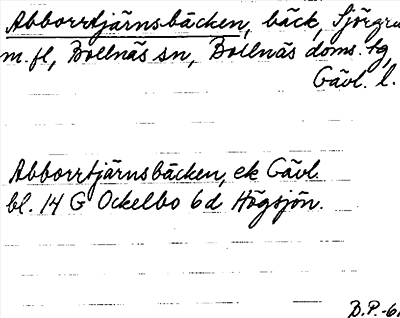 Abborrtjärnsbäcken, bäck, Sjörgru
m.fl, Bollnäs sn, Bollnäs doms. hg,
Gävl. l.
Abborrtjärnsbäcken, ek Gävl.
bl. 14 G Ockelbo 6d Högsjön.
B.P.-6